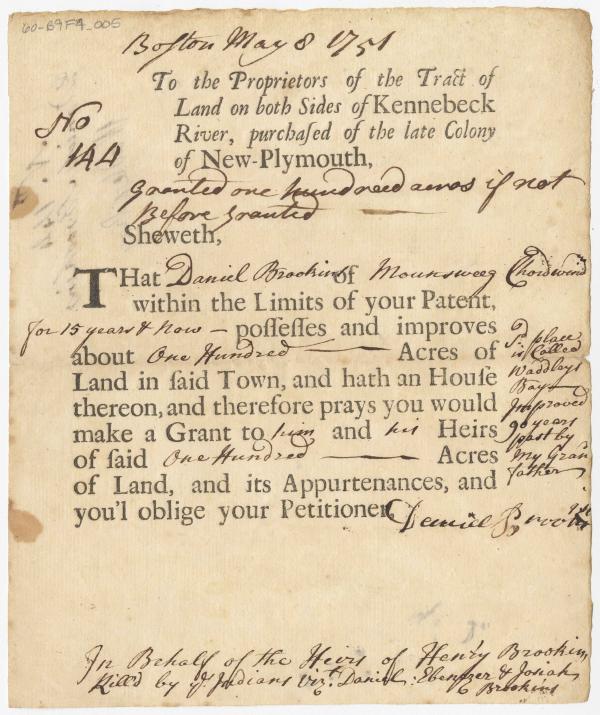 60-B9F4_005
Boston May 8 1751
To the Proprietors of the Tract of
Land on both Sides of Kennebeck
River, purchaſed of the late Colony
of New-Plymouth,
No
144
Granted one hundreed acros if not
Before granted
Sheweth,
THat Daniel Brookins of Mounsweeg
within the Limits of your Patent,
for 15 years & now — poſſeſſes and improves
about One Hundred — Acres of
Land in ſaid Town, and hath an Houſe
thereon, and therefore prays you would
make a Grant to him and his Heirs
of ſaid One Hundred — Acres
of Land, and its Appurtenances, and
you'l oblige your Petitioner,
place
is Called
Waddleys
Bay
Improved
90 years
past by
My Gran
father
Daniel Brookins
In Behalf of the Heirs of Henry Brookins
Kill'd by yᵉ Indians vizᵗ Daniel: Ebenezer & Josiah
Brookins